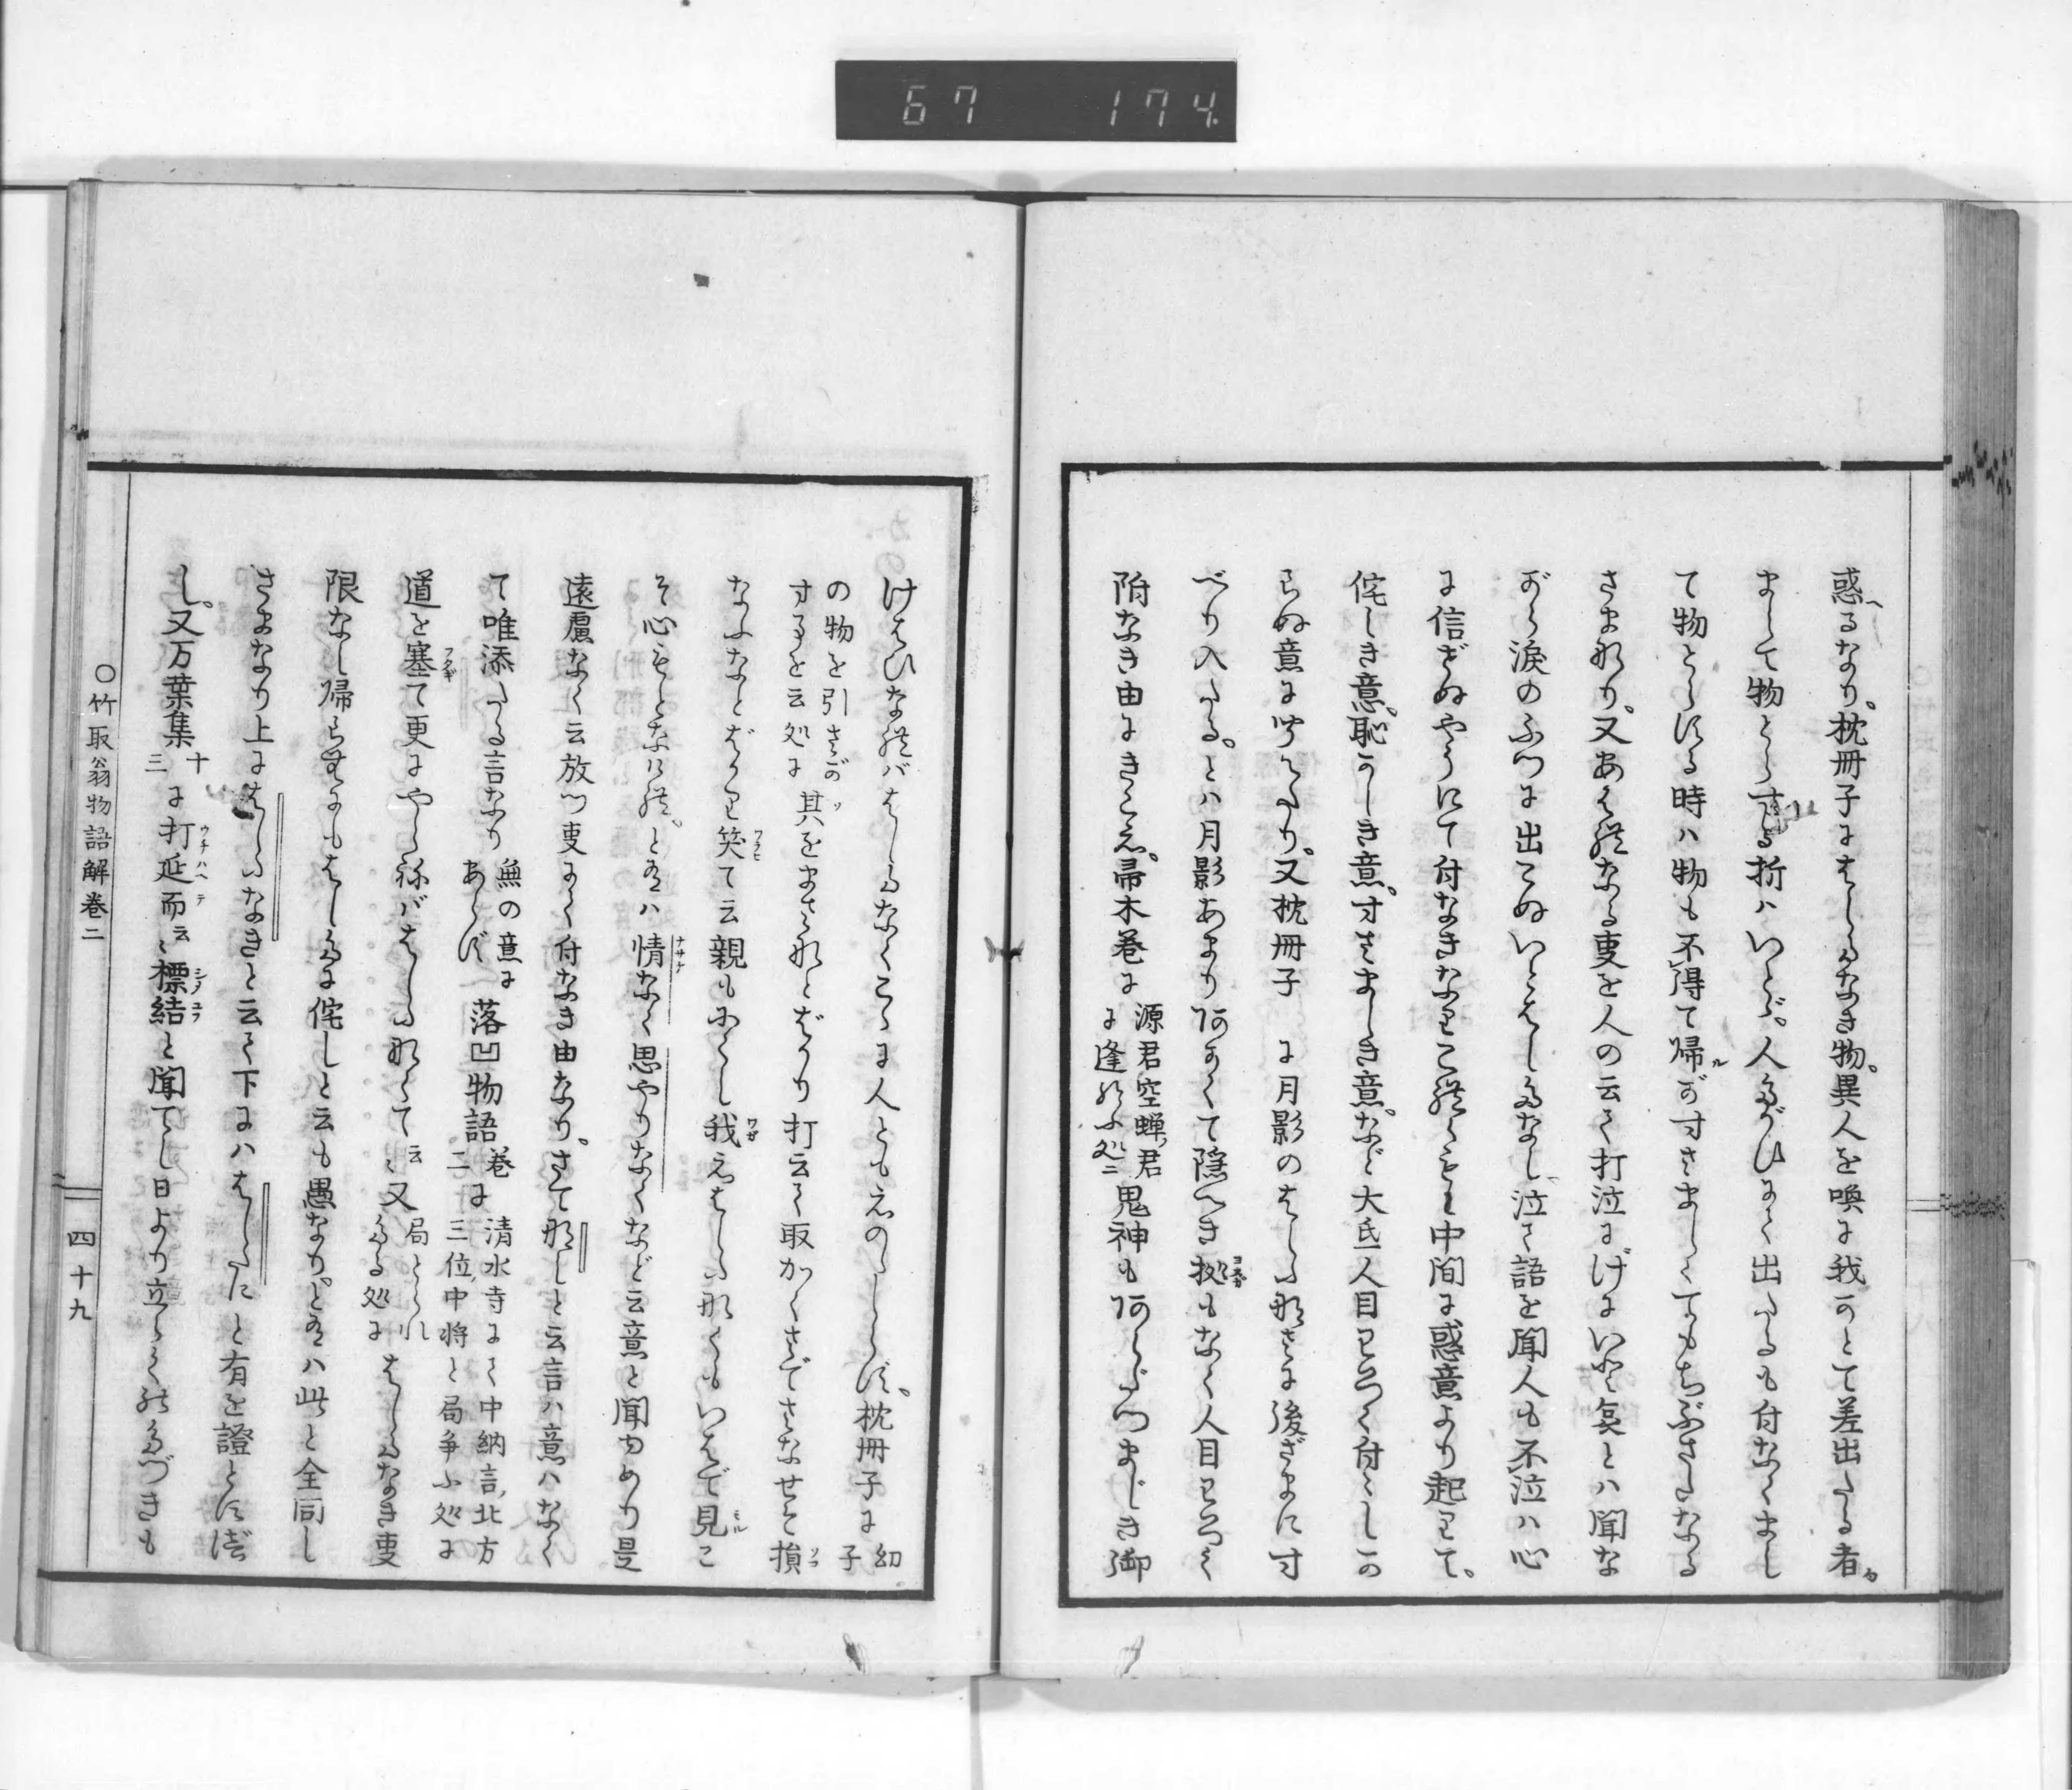 67 174
惑へるなり。枕冊子にはしたなき物。異人を喚に我かとて差出たる者。
まして物とらする折はいとゞ。人たがひにて出たるも付なくまし
て物とらする時ハ物も不得て帰ルがすさましくてもちぶさたなる
さまなり。又あはれなる事を人の云て打泣にげにいと哀とハ聞な
がら涙のふつに出こぬいとはしたなし泣て語を聞人も不泣ハ心
に信ぜぬやうにて付なきなりこれらも中間に惑意より起りて。
侘しき意。恥かしき意。すさましき意。など大氐人目わろく付〻しか
らぬ意に聞えたり。又枕冊子 に月影のはしたなさに後ざまにす
べり入たる。とハ月影あまり明かくて隠へき拠もなく人目わろく
附なき由にきこえ。帚木巻に源君空蝉ノ君に逢給ふ処ニ鬼神も阿らたつまじき御
けはひなればはしたなくこゝに人ともえのゝしらず。枕冊子に幼子
の物を引さがし其をまさなとばかり打云て取かくさでさなせそ損
なふなとばかり笑て云親もにくし我えはしたなくもいはで見こ
そ心もとなけれ。とあるハ情なく思やりなくなど云意と聞ゆめり是
遠慮なく云放つ事にて付なき由なり。さて那しと云言ハ意ハなく
て唯添たる言なり無の意にあらず落凹物語巻二に清水寺にて中納言ノ北方三位ノ中将と局争ふ処に
道を塞て更にやらねばはしたなくて云〻又局とられたる処にはしたなき事
限なし帰らむにもはしたに侘しと云も愚なり。とあるハ此と全同し
さまなり上にはしたなきと云て下にハはしたにと有を證とすべ
し。又万葉集十三に打延而云〻標結と聞てし日より立らく給たづきも
〇竹取翁物語解巻二
四十九